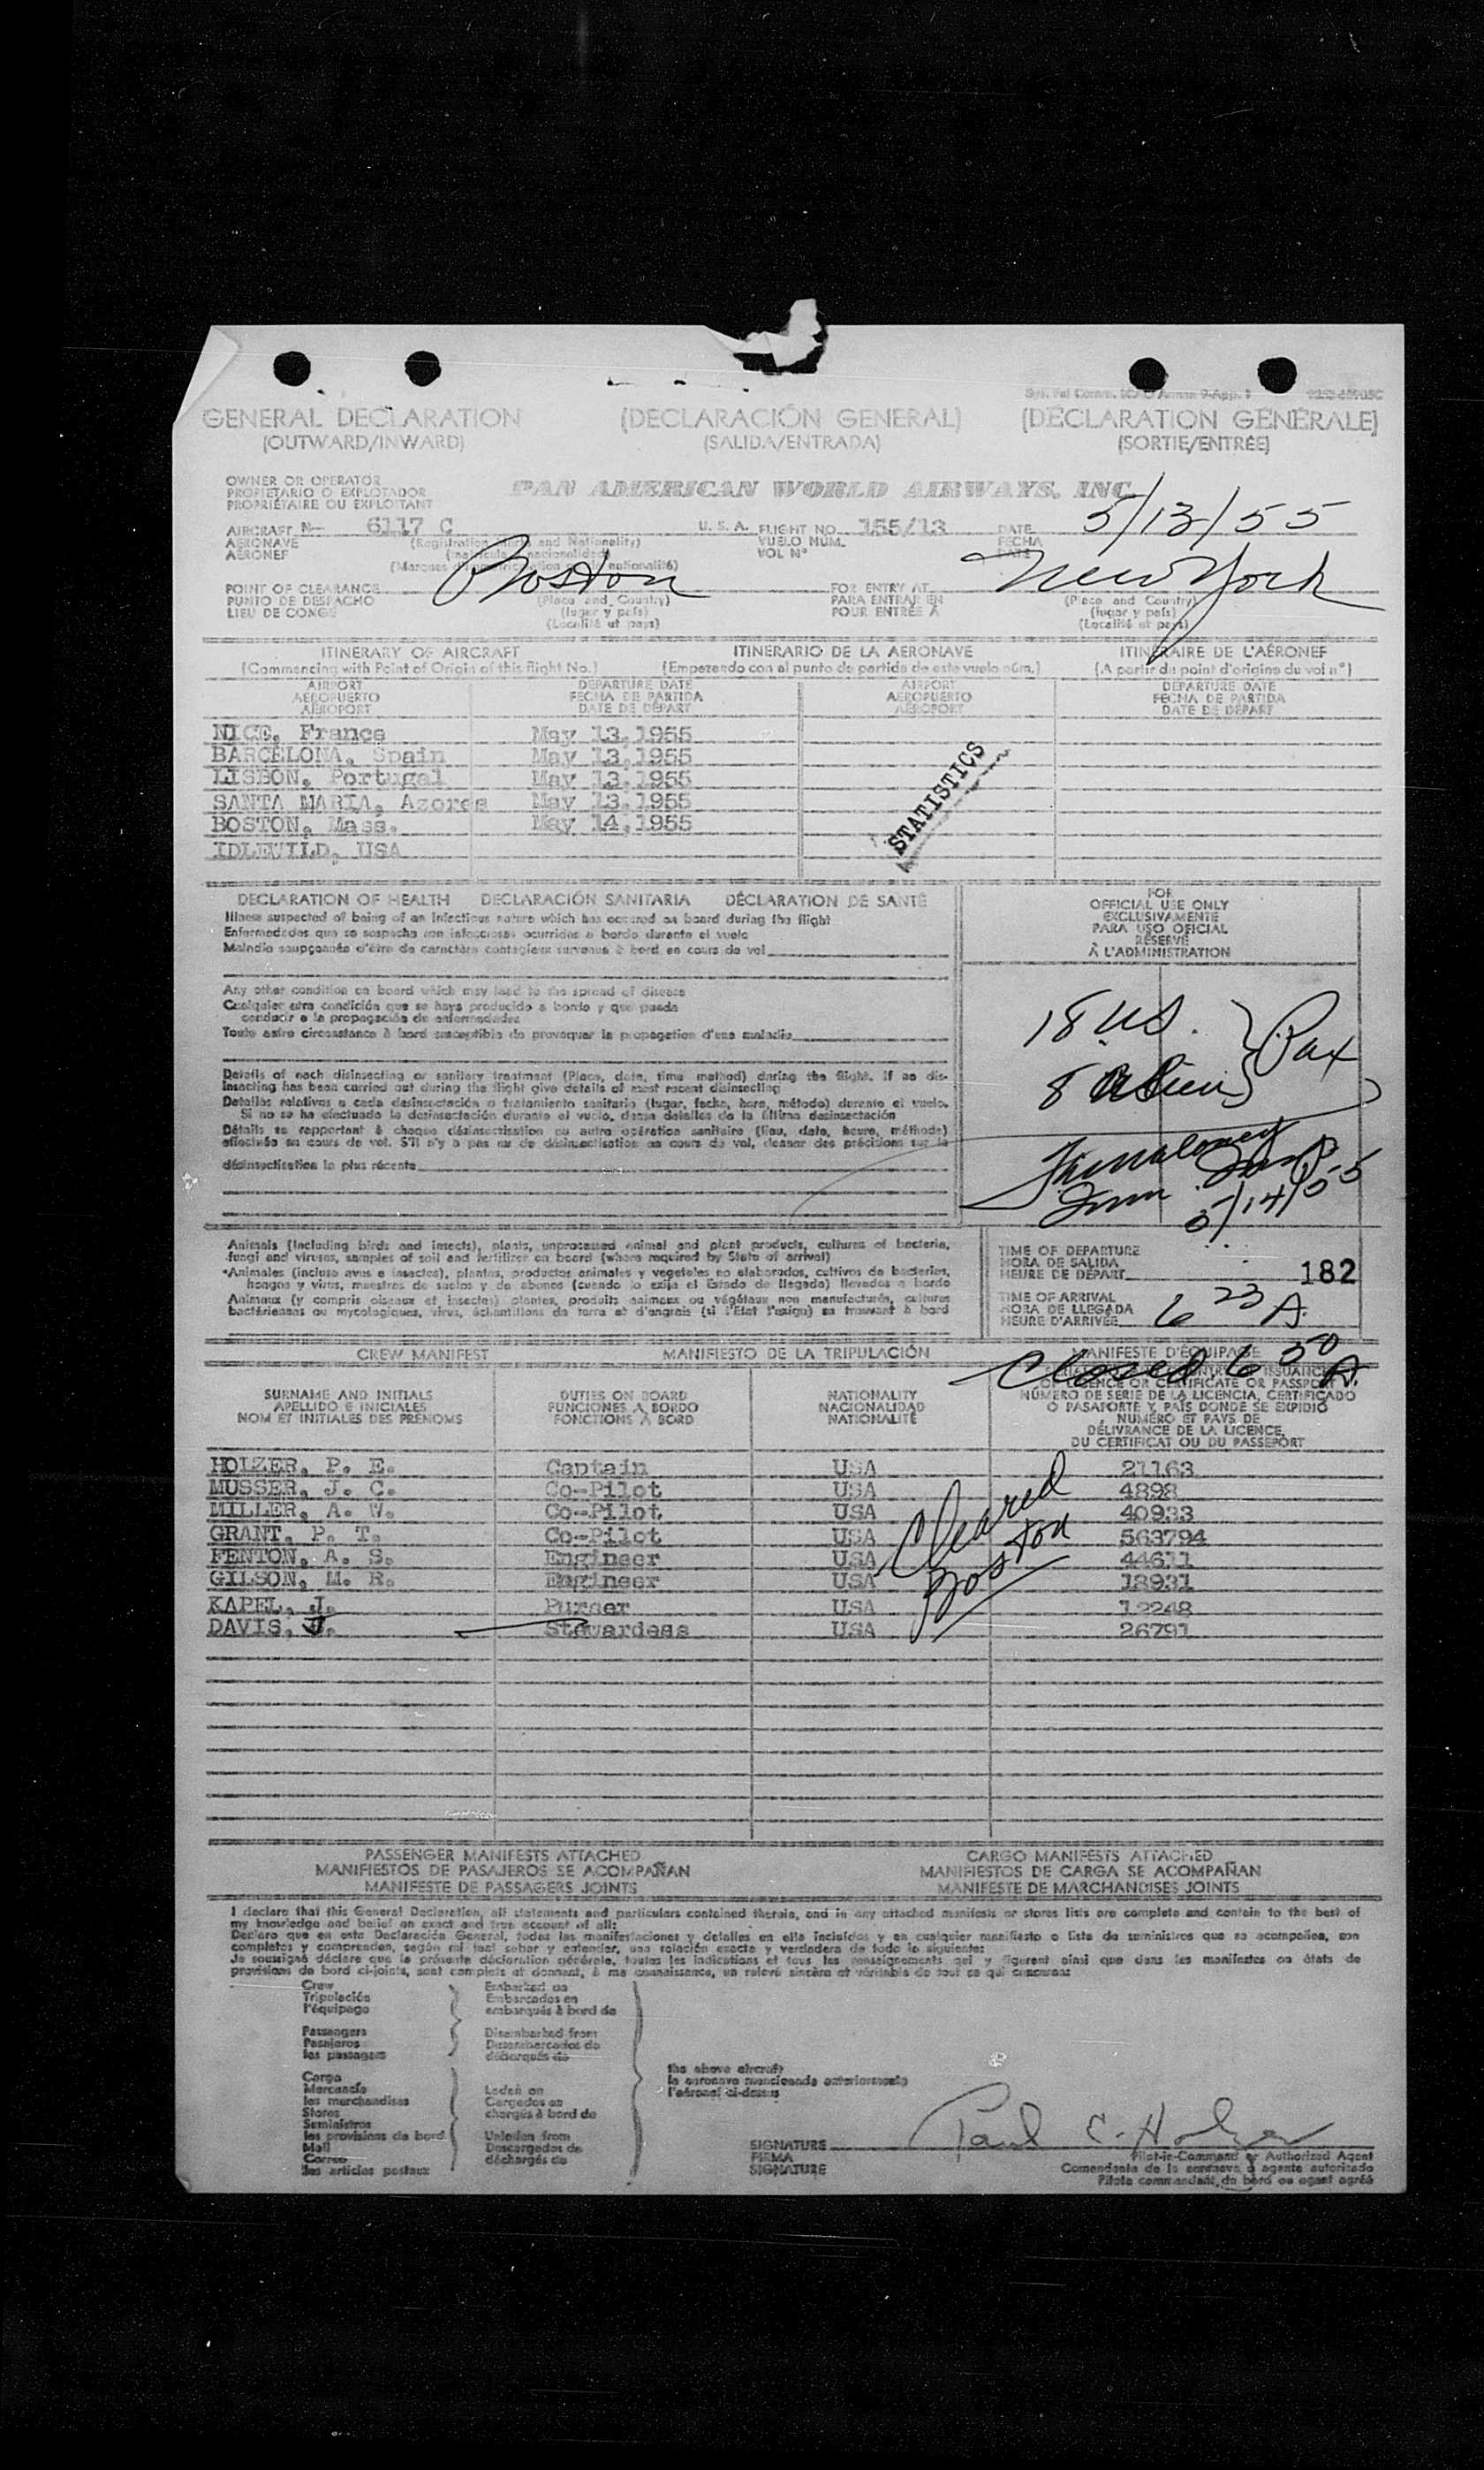 GENERAL DECLARATION (DECLARACIÓN GENERAL) (DÉCLARATION GÉNÉRALE)
(OUTWARD/INWARD) (SALIDA/ENTRADA) (SORTIE/ENTRÉE)
OWNER OR OPERATOR
PROPIETARIO O EXPLOTADOR PAN AMERICAN WORLD AIRWAYS, INC
PROPRIÉTAIRE OU EXPLOITANT
AIRCRAFT N- 6117 C U. S. A. FLIGHT NO. 155/13 DATE 5/13/55
AERONAVE (Registration Marks and Nationality) VUELO NÚM. FECHA
AÉRONEF VOL Nº DATE
POINT OF CLEARANCE Boston FOR ENTRY AT New York
PUNTO DE DESPACHO (Place and Country) PARA ENTRAR EN (Place and Country)
LIEU DE CONGÉ (lugar y país) POUR ENTRÉE À (lugar y país)
(Localité et pays) (Localité et pays)
ITINERARY OF AIRCRAFT ITINERARIO DE LA AERONAVE ITINÉRAIRE DE L'AÉRONEF
(Commencing with Point of Origin of this flight No.) (Empezando con el punto de partida de este vuelo núm.) (A partir du point d'origine du vol nº)
AIRPORT DEPARTURE DATE AIRPORT DEPARTURE DATE
AEROPUERTO FECHA DE PARTIDA AEROPUERTO FECHA DE PARTIDA
AÉROPORT DATE DE DÉPART AÉROPORT DATE DE DÉPART
NICE, France May 13,1955
BARCELONA, Spain May 13,1955
LISBON, Portugal May 13,1955
SANTA MARIA, Azores May 13,1955
BOSTON, Mass. May 14,1955
IDLEWILD, USA
STATISTICS
DECLARATION OF HEALTH DECLARACIÓN SANITARIA DÉCLARATION DE SANTÉ
Illness suspected of being of an infectious nature which has occured on board during the flight
Enfermedades que se sospecha son infecciosas ocurridas a bordo durante el vuelo
Maladie soupçonnée d'être de caractère contagieux survenue à bord en cours de vol
FOR
OFFICIAL USE ONLY
EXCLUSIVAMENTE
PARA USO OFICIAL
RÉSERVÉ
À L'ADMINISTRATION
Any other condition on board which may lead to the spread of disease
Cualquier otra condición que se haya producido a bordo y que pueda
conducir a la propagación de enfermedades
Toute autre circonstance à bord susceptible de provoquer la propagation d'une maladie
18 US. } Pax
8 Alien
Details of each disinsecting or sanitary treatment (Place, date, time method) during the flight. If no dis-
insecting has been carried out during the flight give details of most recent disinsecting
Detalles relativos a cada desinsectación o tratamiento sanitario (lugar, fecha, hora, método) durante el vuelo.
Si no se ha efectuado la desinsectación durante el vuelo, dense detalles de la última desinsectación
Détails se rapportant à chaque désinsectisation ou autre opération sanitaire (lieu, date, heure, méthode)
effectuée au cours de vol. S'il n'y a pas eu de désinsectisation au cours de vol, donner des précisions sur la
désinsectisation la plus récente
Imm. Insp.
5/14/55
Animals (including birds and insects), plants, unprocessed animal and plant products, cultures of bacteria,
fungi and viruses, samples of soil and fertilizer on board (where required by State of arrival)
Animales (incluso aves e insectos), plantas, productos animales y vegetales no elaborados, cultivos de bacterias,
hongos y virus, muestras de suelos y de abonos (cuando lo exija el Estado de llegada) llevados a bordo
Animaux (y compris oiseaux et insectes) plantes, produits animaux ou végétaux non manufacturés, cultures
bactériennes ou mycologiques, virus, échantillons de terre et d'engrais (si l'Etat l'exige) se trouvant à bord
TIME OF DEPARTURE
HORA DE SALIDA
HEURE DE DÉPART 182
TIME OF ARRIVAL
HORA DE LLEGADA
HEURE D'ARRIVÉE 6 23 A.
Closed 6 50 A.
CREW MANIFEST MANIFIESTO DE LA TRIPULACIÓN MANIFESTE D'ÉQUIPAGE
SURNAME AND INITIALS DUTIES ON BOARD NATIONALITY OF LICENCE OR CERTIFICATE OR PASSPORT
APELLIDO E INICIALES FUNCIONES A BORDO NACIONALIDAD NÚMERO DE SERIE DE LA LICENCIA, CERTIFICADO
NOM ET INITIALES DES PRÉNOMS FONCTIONS À BORD NATIONALITÉ O PASAPORTE Y PAÍS DONDE SE EXPIDIÓ
NUMÉRO ET PAYS DE
DÉLIVRANCE DE LA LICENCE,
DU CERTIFICAT OU DU PASSEPORT
HOLZER, P. E. Captain USA 21163
MUSSER, J. C. Co-Pilot USA 4898
MILLER, A. W. Co-Pilot USA 40933
GRANT, P. T. Co-Pilot USA 563794
FENTON, A. S. Engineer USA 44611
GILSON, M. R. Engineer USA 18931
KAPEL, J. Purser USA 12248
DAVIS, J. Stewardess USA 26791
Cleared
Boston
PASSENGER MANIFESTS ATTACHED CARGO MANIFESTS ATTACHED
MANIFIESTOS DE PASAJEROS SE ACOMPAÑAN MANIFIESTOS DE CARGA SE ACOMPAÑAN
MANIFESTE DE PASSAGERS JOINTS MANIFESTE DE MARCHANDISES JOINTS
I declare that this General Declaration, all statements and particulars contained therein, and in any attached manifests or stores lists are complete and contain to the best of
my knowledge and belief an exact and true account of all:
Declaro que en esta Declaración General, todas las manifestaciones y detalles en ella incluídos y en cualquier manifiesto o lista de suministros que se acompañen, son
completos y comprenden, según mi leal saber y entender, una relación exacta y verdadera de todo lo siguiente:
Je soussigné déclare que la présente déclaration générale, toutes les indications et tous les renseignements qui y figurent ainsi que dans les manifestes ou états de
provisions de bord ci-joints, sont complets et donnent, à ma connaissance, un relevé sincère et véritable de tout ce qui concerne:
Crew Embarked on
Tripulación Embarcados en
l'équipage embarqués à bord de
Passengers Disembarked from
Pasajeros Desembarcados de
les passagers débarqués de
Cargo
Mercancía Laden on
les marchandises Cargados en
Stores chargés à bord de
Suministros
les provisions de bord Unladen from
Mail Descargados de
Correo déchargés de
les articles postaux
the above aircraft
la aeronave mencionada anteriormente
l'aéronef ci-dessus
SIGNATURE Paul E. Holzer
FIRMA Pilot-in-Command or Authorized Agent
SIGNATURE Comandante de la aeronave o agente autorizado
Pilote commandant de bord ou agent agréé